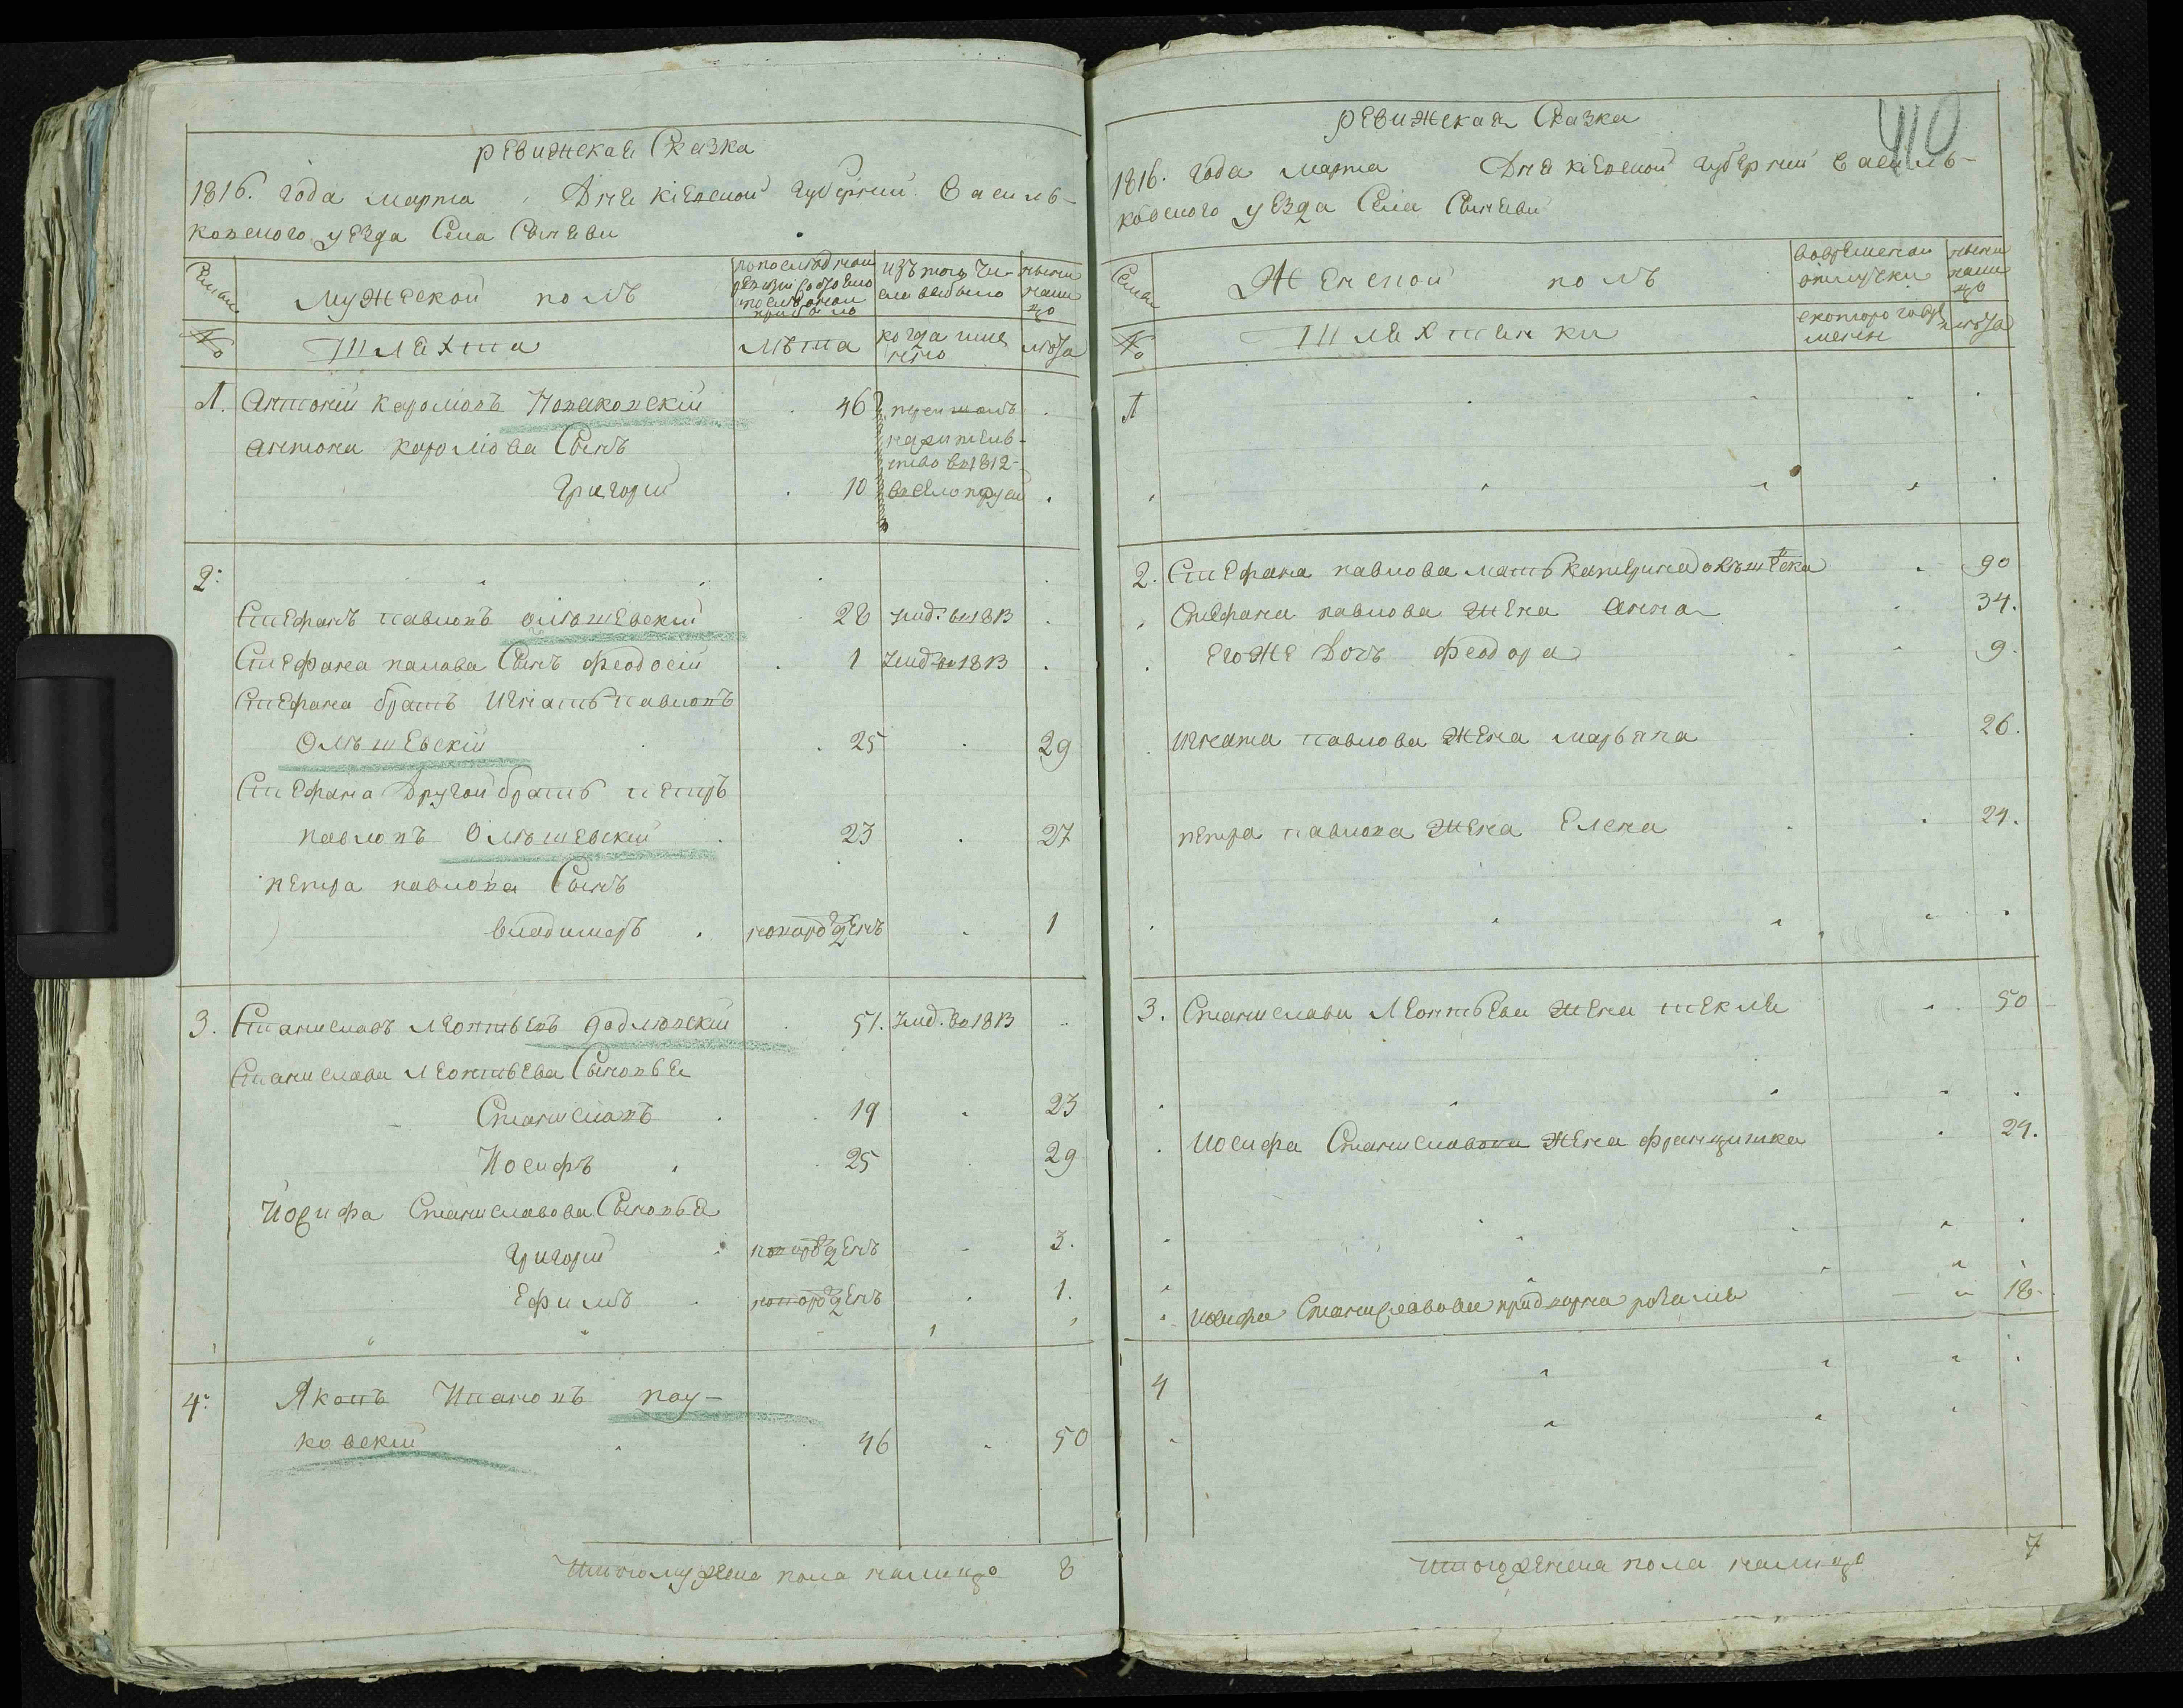 ревижская Сказка
1816. года марта Дня кіевской губерніи Василь-
ковского уезда Села Сычевки
Семьи
мужеской полъ
по последней ревизіи состояло и после оной прибыло
изъ того числа выбыло
ныне налицо
№
Шляхта
лѣта
когда имянно
лѣта
1. Антоній каролювъ Новаковскій 46 перешолъ
антона каролюва Сынъ на жительство въ 1812-
Григорій 10 въ село
2.
Стефанъ павловъ олшевскій 28 умд. въ 1813
Стефана павлова Сынъ феодосій 1 умд. во 1813
Стефана братъ Игнатъ павловъ
Олшевскій 25 29
Стефана другой братъ петръ
павловъ Олшевскій 23 27
петра павлова Сынъ
владимеръ новорожденъ 1
3. Станиславъ леонтьевъ 51. умд. во 1813
Станислава леонтьева Сыновья
Станиславъ 19 23
Иосифъ 25 29
Иосифа Станиславова Сыновья
Григорій новорожденъ 3.
Ефимъ новорожденъ 1.
4. Яковъ Ивановъ пау-
ковскій 46 50
Итого мужеска пола налицо 8
410
ревижская Сказка
1816. года марта Дня кіевской губерніи василь-
ковского уезда Села Сычевки
Семьи
Женской полъ
во временной отлучки
ныне налицо
№
Шляхтянки
с котораго времени
лѣта
1
2. Стефана павлова мать катерина 90
Стефана павлова жена анна 34.
его же Дочь феодора 9.
игната павлова жена марьяна 26.
петра павлова жена Елена 24.
3. Станислава леонтьева жена текля 50
Иосифа Станиславова жена францишка 24.
Иосифа Станиславова 18.
4
Итого женска пола налицо 7